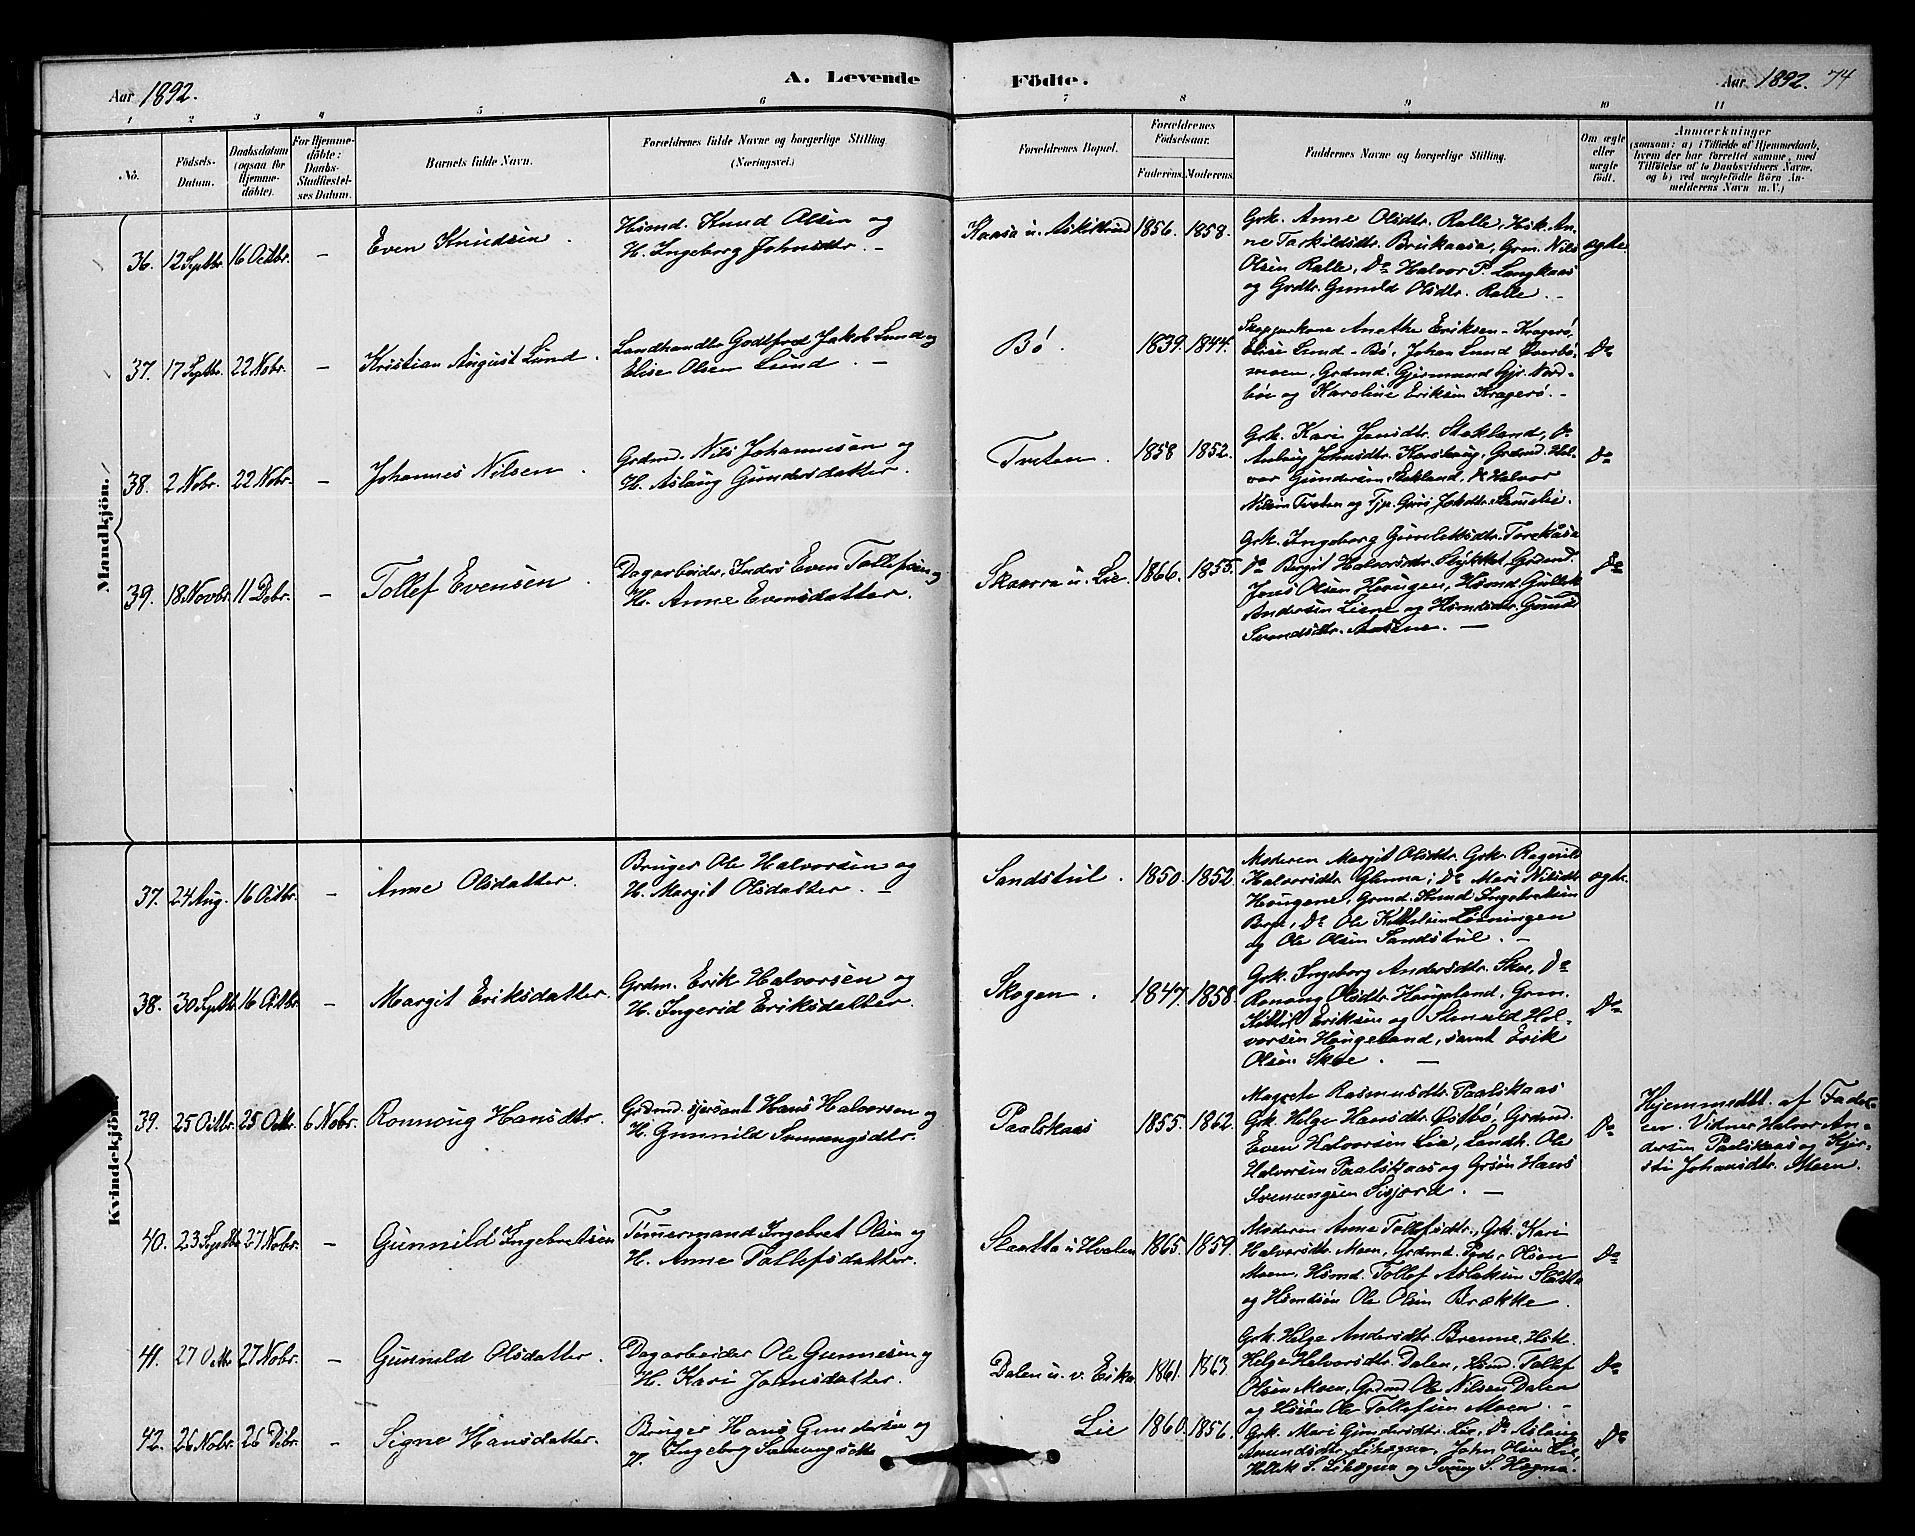 Aar 1892.
A. Levende
Födte.
Aar 1892. 74
1 2 3 4 5 6 7 8 9 10 11
No.
Födsels-
Datum.
Daabsdatum
(ogsaa for
Hjemme-
döbte).
For Hjemme-
döbte:
Daabs-
Stadfæstel-
ses Datum.
Barnets fulde Navn.
Forældrenes fulde Navne og borgerlige Stilling
(Næringsvei.)
Forældrenes Bopæl.
Forældrenes
Födselsaar.
Faderens. Moderens.
Faddernes Navne og borgerlige Stilling.
Om ægte
eller
uægte
födt.
Anmærkninger
(saasom: a) i Tilfælde af Hjemmedaab,
hvem der har forrettet samme, med
Tilföielse af to Daabsvidners Navne,
og b) ved uægtefödte Börn An-
melderens Navn m. V.)
Mandkjön.
36. 12 Septbr. 16 Octbr. –
Even Knudsen.
Hsmd. Knud Olsen og
H. Ingeborg Johnsdtr. –
Kaasa u. 1856. 1858.
Grk. Anne Olsdtr. Ralle, Hsk. An-
ne Torkildsdtr. Brukaasa, Grm. Nils
Olsen Ralle, Do Halvor P. Langkaas
og Grdtr. Gunild Olsdtr. Ralle. –
ægte.
37. 17 Septbr. 22 Nobr. –
Kristian August Lund.
Landhandler Godtfred Jakob Lund og
Elise Olsen Lund. –
Bö. 1839. 1844.
Skipperkone Anethe Eriksen – Kragerö,
Elise Lund – Bö, Johan Lund
moen, Grdmd. Gjermund Gjr. Nord-
böe og Karoline Eriksen Kragerö. –
Do
38. 2 Nobr. 22 Nobr. –
Johannes Nilsen.
Grdmd. Nils Johannesen og
H. Aslaug Gundersdatter.
Tveten. 1858 1852.
Grk. Kari Jensdtr. Stokland, Do
Aslaug Johnsdtr. Grdmd. Hal-
vor Gundersen Stokland, Do Halvor
Nilsen Tveten og Tjp.
Do
39. 18 Novbr. 11 Debr. –
Tollef Evensen.
Dagarbeider, Inders Even Tollefsen og
H. Anne Evensdatter.
Skaarra u. Lie. 1866. 1855.
Grk. Ingeborg Torekaasa
Do Birgit Halvorsdtr. Grdmd.
Jens Olsen Haugen, Hsmd. Gullek
Andersen Liene og Hsmdsdtr. Gunild
Svendsdtr. Aasene. –
Do
Kvindekjön.
37. 24 Aug. 16 Octbr. –
Anne Olsdatter.
Bruger Ole Halvorsen og
H. Margit Olsdatter. –
Sandstul. 1850. 1852.
Moderen Margit Olsdtr. Grk. Ragnild
Halvorsdtr. Glenna, Do Mari Nilsdtr.
Haugene, Grmd. Knud Ingebretsen
Berge, Do Ole Kittelsen
og Ole Olsen Sandstul. –
ægte.
38. 30 Septbr. 16 Octbr. –
Margit Eriksdatter.
Grdm. Erik Halvorsen og
H. Ingerid Eriksdatter.
Skogen. 1847. 1858.
Grk. Ingeborg Andersdtr. Skoe, Do
Ronaug Olsdtr. Haugeland, Grm.
Kittil Eriksen og Hal-
vorsen Haugeland, samt Erik
Olsen Skoe. –
Do
39. 25 Octbr. 25 Octbr. 6 Nobr.
Ronnoug Hansdtr.
Grdmd. sjersant Hans Halvorsen og
H. Gunnild Svenungsdtr.
Paalskaas 1855. 1862.
Margrete Rasmusdtr. Paalskaas
Grk. Helge Hansdtr. Östbö, Grdmd.
Even Halvorsen Lia, Landh. Ole
Halvorsen Paalskaas og Grsön Hans
Svenungsen Sisjord. –
Do
Hjemmedöbt af Fader-
en. Vidner Halvor An-
dersen Paalskaas og Kjer-
sti Johansdtr. Moen.
40. 23 Septbr. 27 Nobr. –
Gunnild Ingebretsen
Tömermand Ingebret Olsen og
H. Anne Tollefsdatter.
Slaatta u. Hvalen 1865. 1859.
Moderen Anne Tollefsdtr, Grk. Kari
Halvorsdtr. Moen, Grdmd. Peder Olsen
Moen, Hsmd. Tollef Aslaksen Slaatta
og Hsmdsön Ole Olsen Brække.
Do
41. 27 Octbr 27 Nobr. –
Gunnild Olsdatter.
Dagarbeider Ole Gunnesen og
H. Kari Johnsdatter.
Dalen u. v. Eika 1861. 1863
Grk. Helge Andersdtr. Brenne, Hsk.
Helge Halvorsdtr. Dalen, Hsmd. Tollef
Olsen Moen, Grdmd Ole Nilsen Dalen
og Hssön Ole Tollefsen Moen. –
Do
42. 26 Nobr. 26 Debr. –
Signe Hansdatter.
Bruger Hans Gundersen og
H. Ingeborg Svenungsdtr
Lie 1860. 1856.
Grk. Mari Gundersdtr. Lie, Do Aslaug
Amundsdtr. John Olsen Lie,
og S. Hegna.
Do